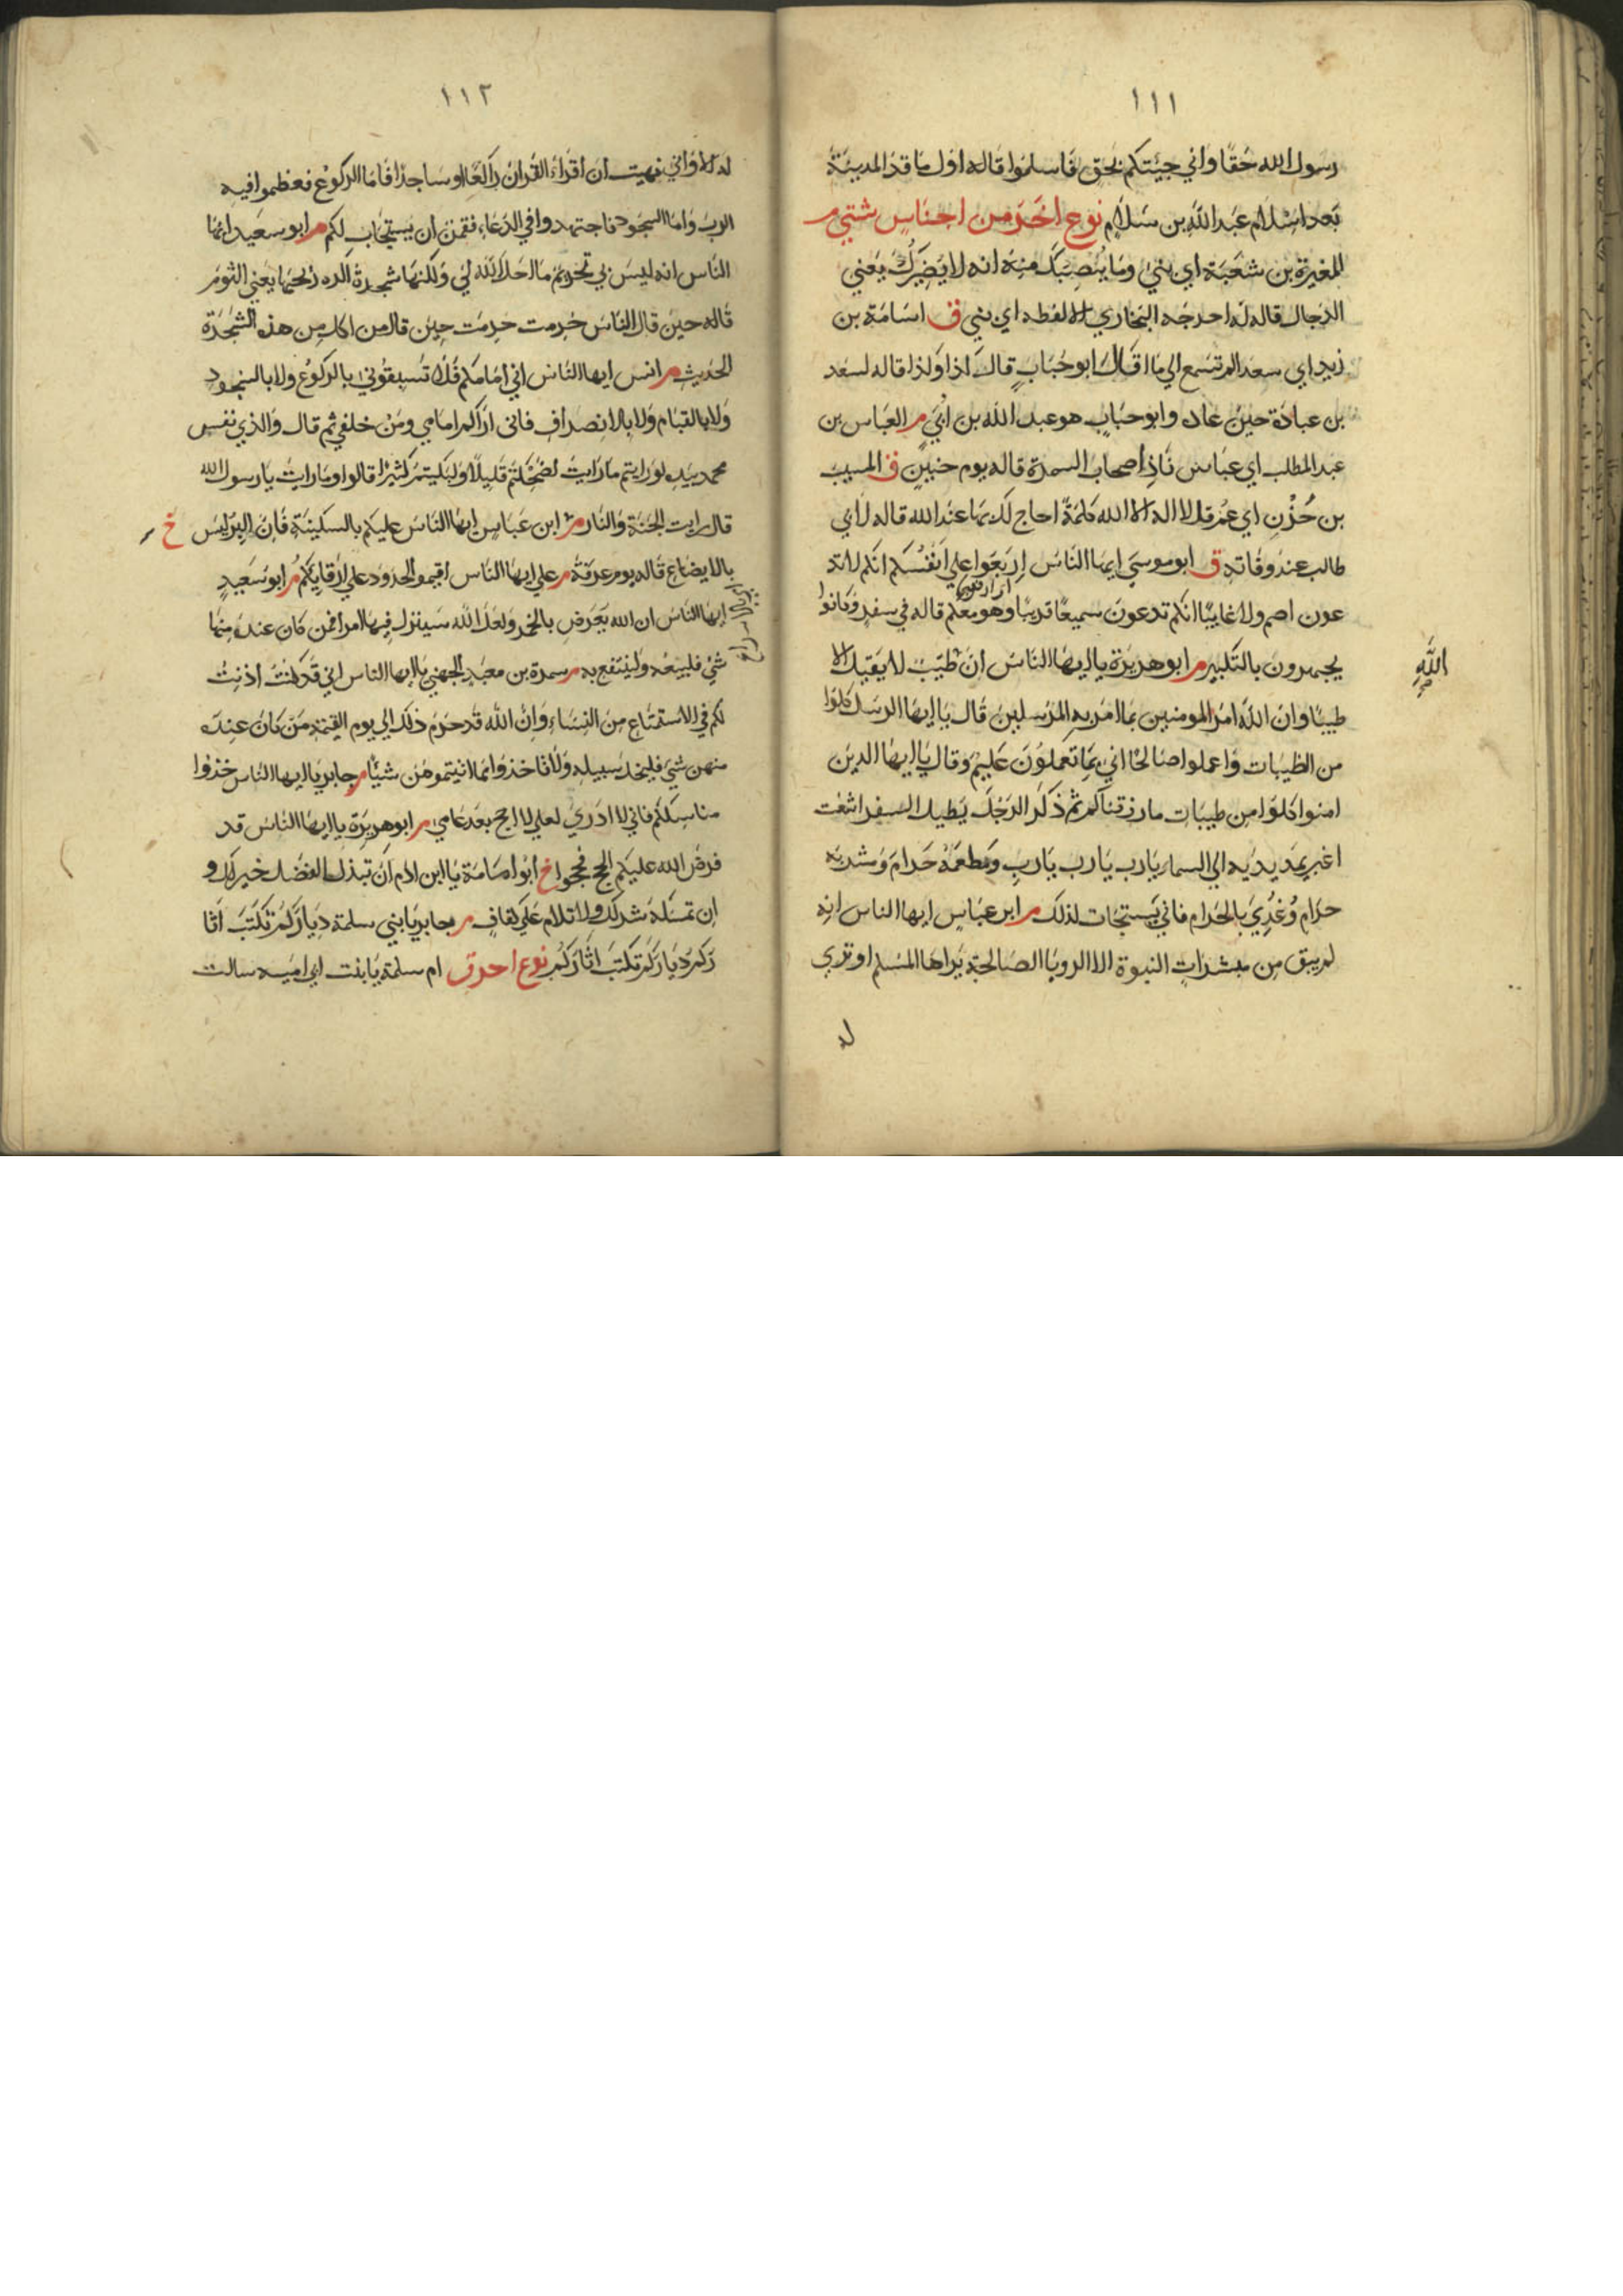 ١١١
رسول الله حقا واني جيتكم بحق فاسلموا قاله اول ما قدم المدينة
بعد اسلام عبد الله بن سلام نوع اخر من اجناس شتي م
المغيرة بن شعبة اي بني وما ينصبك منه انه لا يضرك يعني
الدجال قاله له اخرجه البخاري الا لفظه اي بني ق اسامة بن
زيد اي سعد الم تسمع الي ما قال ابو حباب قال كذا وكذا قاله لسعد
بن عبادة حين عاده وابو حباب هو عبد الله بن ابي م العباس بن
عبد المطلب اي عباس ناد اصحاب السمرة قاله يوم حنين ق المسيب
بن حزن اي عم قل لا اله الا الله كلمة احاج لك بها عند الله قاله لابي
طالب عند وفاته ق ابو موسي ايها الناس اربعوا علي انفسكم انكم لا تد
عون اصم ولا غايبا انكم تدعون سميعا قريبا وهو معكم قاله في سفر وكانوا
يجهرون بالتكبير م ابو هريرة يا ايها الناس ان طيب لا يقبل الا
الله
صح
طيبا وان الله امر المومنين بما امر به المرسلين قال يا ايها الرسل كلوا
من الطيبات واعملوا صالحا اني بما تعملون عليم وقال يا ايها الذين
امنوا كلوا من طيبات ما رزقناكم ثم ذكر الرجل يطيل السفر اشعث
اغبر يمد يديه الي السماء يا رب يا رب يا رب ومطعمه حرام ومشربه
حرام وغذي بالحرام فاني يستجاب لذلك م ابن عباس ايها الناس انه
لم يبق من مبشرات النبوة الا الرويا الصالحة يراها المسلم او تري
له
١١٢
له الا واني نهيت ان اقراء القران راكعا او ساجدا فاما الركوع فعظموا فيه
الرب واما السجود فاجتهدوا في الدعاء فقمن ان يستجاب لكم م ابو سعيد ايها
الناس انه ليس بي تحريم ما احل الله لي ولكنها شجرة اكره ريحها يعني الثوم
قاله حين قال الناس حرمت حرمت حين قال من اكل من هذه الشجرة
الحديث م انس ايها الناس اني امامكم فلا تسبقوني بالركوع ولا بالسجود
ولا بالقيام ولا بالانصراف فاني اراكم امامي ومن خلفي ثم قال والذي نفس
محمد بيده لو رايتم ما رايت لضحكتم قليلا ولبكيتم كثيرا قالوا وما رايت يا رسول الله
قال رايت الجنة والنار م ابن عباس ايها الناس عليكم بالسكينة فان البر ليس خ
بالايضاع قاله يوم عرفة م علي ايها الناس اقيموا الحدود علي ارقايكم م ابو سعيد
ايها الناس ان الله يعرض بالخمر ولعل الله سينزل فيها امرا فمن كان عنده منها
شي فليبعه ولينتفع به م سمرة بن معبد الجهني يا ايها الناس اني قد كنت اذنت
لكم في الاستمتاع من النساء وان الله قد حرم ذلك الي يوم القيمة من كان عنده
منهن شي فليخل سبيله ولا تاخذوا مما اتيتموهن شيئا م جابر يا ايها الناس خذوا
مناسككم فاني لا ادري لعلي لا احج بعد عامي م ابو هريرة يا ايها الناس قد
فرض الله عليكم الحج فحجوا خ ابو امامة يا ابن ادم ان تبذل الفضل خير لك و
ان تمسكه شر لك ولا تلام علي كفاف م جابر يا بني سلمة دياركم تكتب اثا
ركم دياركم تكتب اثاركم نوع اخر ق ام سلمة يا بنت ابي امية سالت